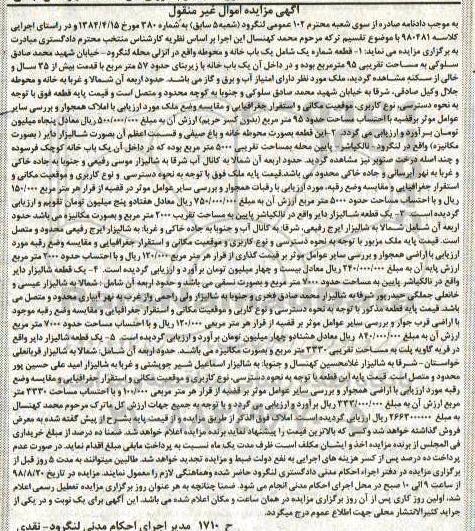 آگهی مزایده اموال غیر منقول
به موجب دادنامه صادره از سوی شعبه محترم ۱۰۲ عمومی لنگرود (شعبه ۵ سابق) به شماره ۳۸۰ مورخ ۱۳۸۴/۴/۱۵ و در راستای اجرایی
کلاسه ۹۸۰۴۸۱ با موضوع تقسیم ترکه مرحوم محمد کهنسال این اجرا بر اساس نظریه کارشناس منتخب محترم دادگستری مبادرت
به برگزاری مزایده می نماید: ۱- قطعه شماره یک شامل یک باب خانه و محوطه واقع در انزلی محله لنگرود - خیابان شهید محمد صادق
سلوکی به مساحت تقریبی ۹۵ مترمربع بوده و در داخل آن یک باب خانه با زیربنای حدود ۵۷ متر مربع با قدمت بیش از ۳۵ سال و
خالی از سکنه مشاهده گردید، ملک مورد نظر دارای امتیاز آب و برق و گاز می باشد. حدود اربعه آن شمالا و غربا به خانه و محوطه
جلال وکیل صادقی، شرقا به خیابان شهید محمد صادق سلوکی و جنوبا به کوچه محدود و متصل است و قیمت پایه قطعه فوق با توجه
به نحوه دسترسی، نوع کاربری، موقعیت مکانی و استقرار جغرافیایی و مقایسه وضع ملک مورد ارزیابی با املاک همجوار و بررسی سایر
عوامل موثر برقضیه با احتساب مساحت حدود ۹۵ متر مربع (بدون کسر حریم) ارزش آن به مبلغ ۵۰۰/۰۰۰/۰۰۰ ریال معادل پنجاه میلیون
تومان بـر آورد و ارزیابی می گردد. ۲- این قطعه بصورت محوطه خانه و باغ صیفی و قسمت اعظم آن بصورت شالیزار دایر (بصورت
مکانیزه) واقع در لنگرود - نالکیاشر پایین محله بمساحت تقریبی ۵۰۰۰ متر مربع بوده که در داخل آن یک باب خانه کوچک فرسوده
و چند اصله درخت صنوبر نیز مشاهده گردید. حدود اربعه آن شمالا به کانال آب شرقا به شالیزار موسی رفیعی و جنوبا به جاده خاکی
و غربا به نهر آبرسانی و جاده خاکی محدود می باشد. قیمت پایه ملک فوق با توجه به نحوه دسترسی و نوع کاربری و موقعیت مکانی و
استقرار جغرافیایی و مقایسه وضع رقبه، مورد ارزیابی با رقبات همجوار و بررسی سایر عوامل موثر در قضیه از قرار هر متر مربع ۱۵۰/۰۰۰
ریال و با احتساب مساحت حدود ۵۰۰۰ متر مربع ارزش آن به مبلغ ۷۵۰/۰۰۰/۰۰۰ ریال معادل هفتاد و پنج میلیون تومان تقویم و ارزیابی
گردیده است. ۳- یک قطعه شالیزار دایر واقع در نالکیاشر پایین به مساحت تقریب ۲۰۰۰ متر مربع و بصورت مکانیزه می باشد حدود
اربعه آن شمالا به شالیزار ایرج رفیعی، شرقا به کانال آب و جنوبا به جاده خاکی و غربا به شالیزار ایرج رفیعی محدود و متصل
است. قیمت پایه ملک مزبور با توجه به نحوه دسترسی و نوع کاربری و موقعیت مکانی و استقرار جغرافیایی و مقایسه وضع رقبه مورد
ارزیابی با اراضی همجوار و بررسی سایر عوامل موثر بر قیمت گذاری از قرار هر متر مربع ۱۲۰/۰۰۰ ریال و با احتساب حدود ۲۰۰۰ متر مربع
ارزش پایه آن به مبلغ ۲۴۰/۰۰۰/۰۰۰ ریال معادل بیست و چهار میلیون تومان بر آورد و ارزیابی گردیده است. ۴- یک قطعه شالیزار دایر
واقع در نالکیاشر پایین به مساحت حدود ۷۰۰۰ متر مربع و بصورت نسقی می باشد و حدود اربعه آن شامل: شمالا به شالیزار عیسی و
خانعلی جملگی حیدرپور شرقا به شالیزار محمد صادق فخری و جنوبا به شالیزار ولی راجعی واز غرب به نهر آبیاری محدود و متصل می
باشد. قیمت پایه قطعه مذکور با توجه به نحوه دسترسی و نوع کاربری و موقعیت مکانی و استقرار جغرافیایی و مقایسه وضع رقبه موجود
با اراضی قرب جوار و بررسی سایر عوامل موثر بر قضیه از قرار هر متر مربعی ۱۲۰/۰۰۰ ریال و با احتساب مساحت حدود ۷۰۰۰ متر مربع
ارزش آن به مبلغ ۸۴۰/۰۰۰/۰۰۰ ریال معادل هشتاد و چهار میلیون تومان برآورد و ارزیابی گردیده است. ۵- یک قطعه شالیزار دایر واقع
در قریه گاویه پلت به مساحت تقریبی ۳۳۳۰ متر مربع و بصورت مکانیزه می باشد. حدود اربعه آن شامل: شمالا به شالیزار قربانعلی
خواستان - شرقا به شالیزار غلامحسین کهنسال و جنوبا به شالیزار اسماعیل شیر جوپشتی و غربا به شالیزار امید علی حسین پور
محدود و متصل است. قیمت پایه این قطعه با توجه به نحوه دسترسی، نوع کاربری و موقعیت مکانی و استقرار جغرافیایی و مقایسه وضع
رقبه مورد ارزیابی با اراضی همجوار و بررسی سایر عوامل موثر بر قضیه از قرار هر متر مربعی ۱۰۰/۰۰۰ ریال و با احتساب مساحت ۳۳۳۰ متر
مربع ارزش آن به مبلغ ۳۳۳/۰۰۰/۰۰۰ ریال برآورد و ارزیابی می گردد و با توجه به جمیع جهات ارزش کل ماترک مرحوم محمد کهنسال
به مبلغ ۲۶۶۳۰۰۰۰۰۰ ریال ارزیابی گردیده است. املاک فوق الذکر از طریق مزایده از قیمت پایه به شرح از پیش گفته شده به معرض
فروش گذاشته خواهد شد و کسی که بالاترین قیمت را پیشنهاد نماید برنده مزایده اعلام خواهد شد. ضمنا ده درصد از مبلغ خریداری
فی المجلس از برنده مزایده اخذ و ایشان مکلف است ظرف مدت یک ماه نسبت به پرداخت مابقی مبلغ اقدام نماید. در صورت عدم
پرداخت ده درصد پس از کسر هزینه های اجرایی به نفع دولت ضبط و مزایده تجدید خواهد شد. طالبین میتوانند به مدت ۵ روز قبل از
برگزاری مزایده در دفتر اجراء احکام مدنی دادگستری لنگرود حاضر شده وهماهنگی لازم را معمول نمایند. مزایده در تاریخ ۹۸/۸/۲۰
از ساعت ۹ الی ۱۰ صبح در محل اجرای احکام مدنی انجام می شود. ضمنا چنانچه به هر عنوان روز برگزاری مزایده تعطیل رسمی اعلام
شد، اولین روز کاری پس از آن روز برگزاری مزایده در همان ساعت و مکان اعلام شده می باشد. این آگهی برای یک نوبت و در یکی از
جراید کثیرالانتشار محلی جهت اطلاع عموم درج میگردد.
ح ۱۷۱۰ مدیر اجرای احکام مدنی لنگرود - نقدی